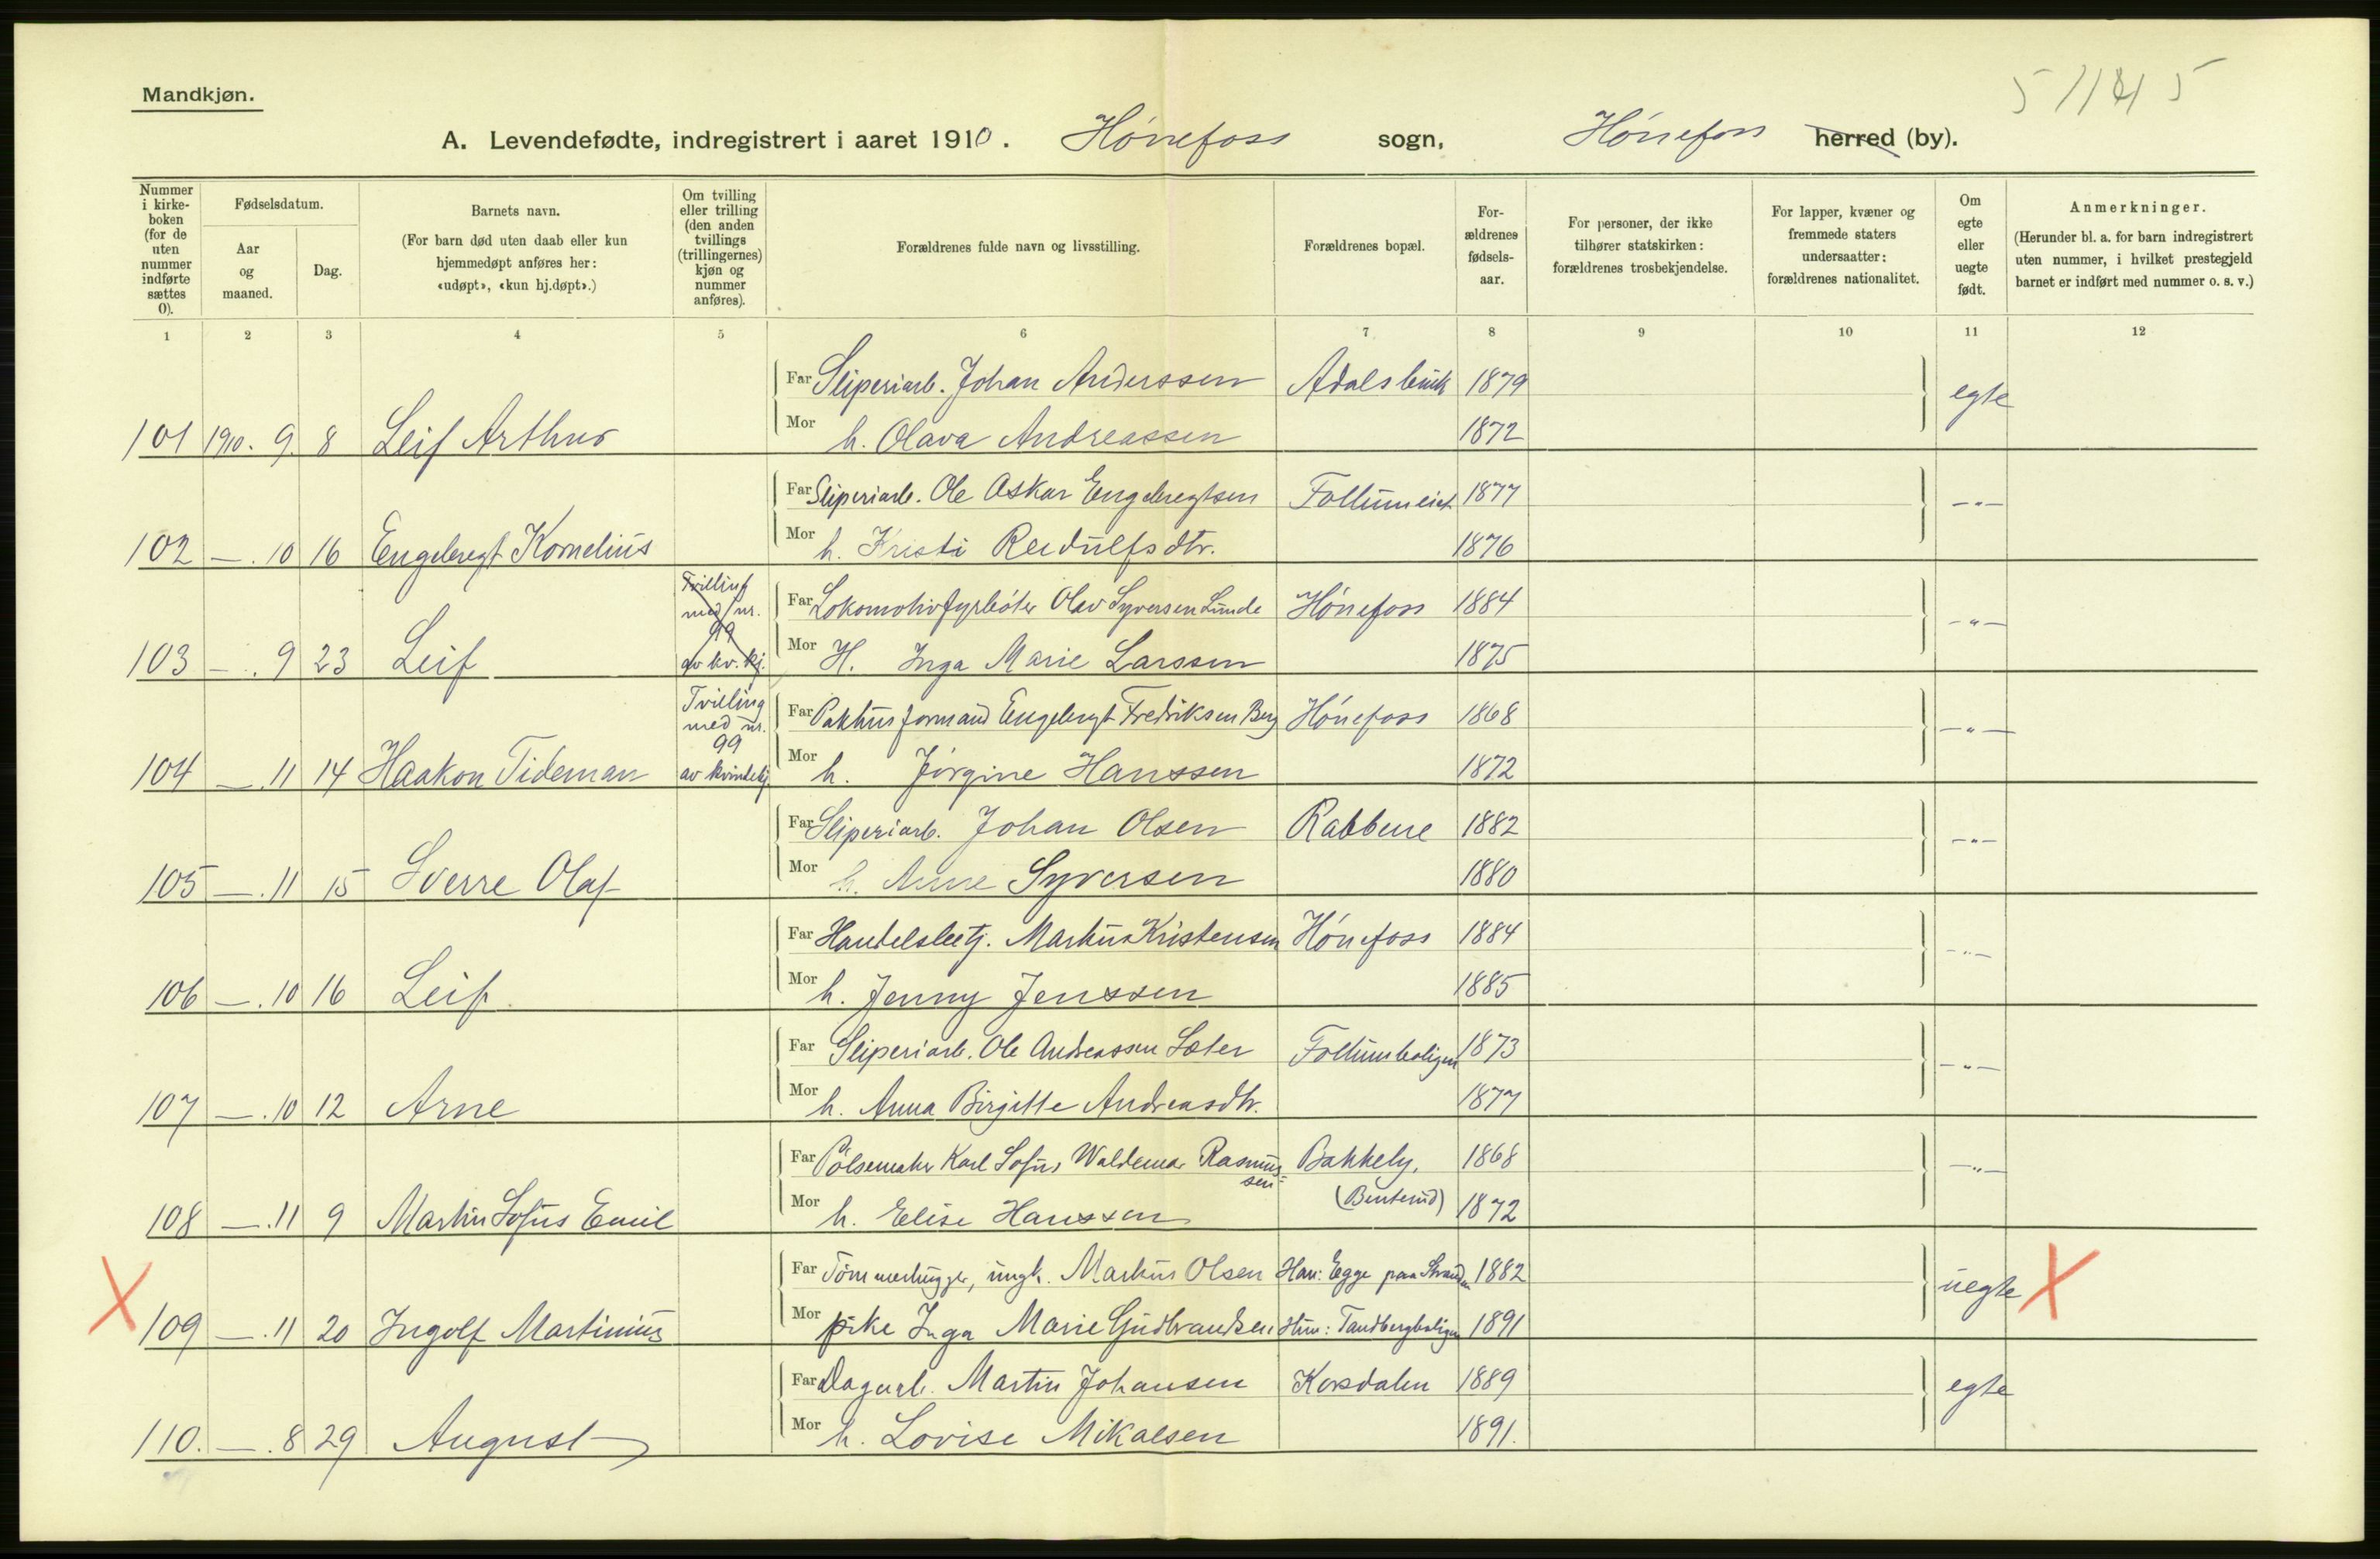 Mandkjøn.
5 11 41 5
A. Levendefødte, indregistrert i aaret 1910. Hönefoss sogn, Hönefoss herred (by).
Nummer i kirke-boken (for de uten nummer indførte sættes 0).
Fødselsdatum.
Aar og maaned.
Dag.
Barnets navn.
(For barn død uten daab eller kun hjemmedøpt anføres her: «udøpt», «kun hj.døpt».)
Om tvilling eller trilling (den anden tvillings (trillingernes) kjøn og nummer anføres).
Forældrenes fulde navn og livsstilling.
Forældrenes bopæl.
For-ældrenes fødsels-aar.
For personer, der ikke tilhører statskirken: forældrenes trosbekjendelse.
For lapper, kvæner og fremmede staters undersaatter: forældrenes nationalitet.
Om egte eller uegte født.
Anmerkninger.
(Herunder bl. a. for barn indregistrert uten nummer, i hvilket prestegjeld barnet er indført med nummer o. s. v.)
1 2 3 4 5 6 7 8 9 10 11 12
Far Sliperiarb. Johan Anderssen Adalsbruk 1879 egte
101 1910. 9. 8 Leif Arthur Mor h. Olava Andreassen 1872
Far Sliperiarb. Ole Oskar Engebregtsen Follumeiet 1877 -"-
102 — . 10 16 Engebregt Kornelius Mor h. Kristi Reidulfsdtr. 1876
Tvilling med nr. 99 av kv. kj.
Far Lokomotivfyrbøter Olav Syversen Lunde Hönefoss 1884 -"-
103 — . 9 23 Leif Mor H. Inga Marie Larssen 1875
Tvilling med nr. 99 av kvindekj.
Far Pakhusformand Engebregt Fredriksen Berg Hönefoss 1868 -"-
104 — . 11 14 Haakon Tideman Mor h. Jörgine Hanssen 1872
Far Sliperiarb. Johan Olsen Rabbene 1882 -"-
105 — . 11 15 Sverre Olaf Mor h. Anne Syversen 1880
Far Handelsbetj. Markus Kristensen Hönefoss 1884 -"-
106 — . 10 16 Leif. Mor h. Jenny Jenssen 1885
Far Sliperiarb. Ole Andreassen Sæter Follumboligen 1873 -"-
107 — . 10 12 Arne Mor h. Anna Birgitte Andreasdtr. 1877
Far Pölsemaker Karl Sofus Waldemar Rasmus-sen Bakkely. 1868 -"-
108 — . 11 9 Martin Sofus Emil Mor h. Elise Hanssen (Benterud) 1872
Far Tömmerhugger, ungk. Markus Olsen Han: Egge paa Stranden 1882 uegte X
X 109 — . 11 20 Ingolf Martinius Mor pike Inga Marie Gudbrandsen Hun: Tandbergboligen 1891
Far Dagarb. Martin Johansen Korsdalen 1889 egte
110. — . 8 29 August Mor h. Lovise Mikalsen 1891.